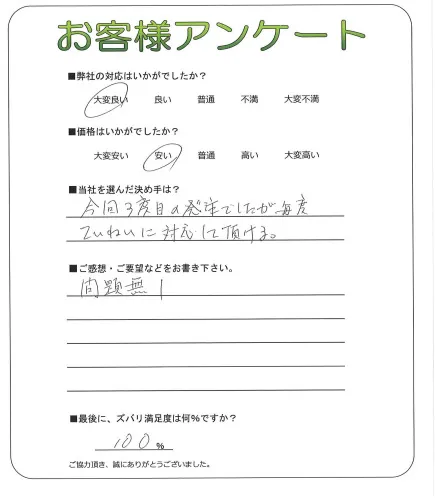 お客様アンケート
■弊社の対応はいかがでしたか？
大変良い 良い 普通 不満 大変不満
■価格はいかがでしたか？
大変安い 安い 普通 高い 大変高い
■当社を選んだ決め手は？
今回3度目の発注でしたが毎度
ていねいに対応して頂ける。
■ご感想・ご要望などをお書き下さい。
問題無し
■最後に、ズバリ満足度は何%ですか？
100%
ご協力頂き、誠にありがとうございました。